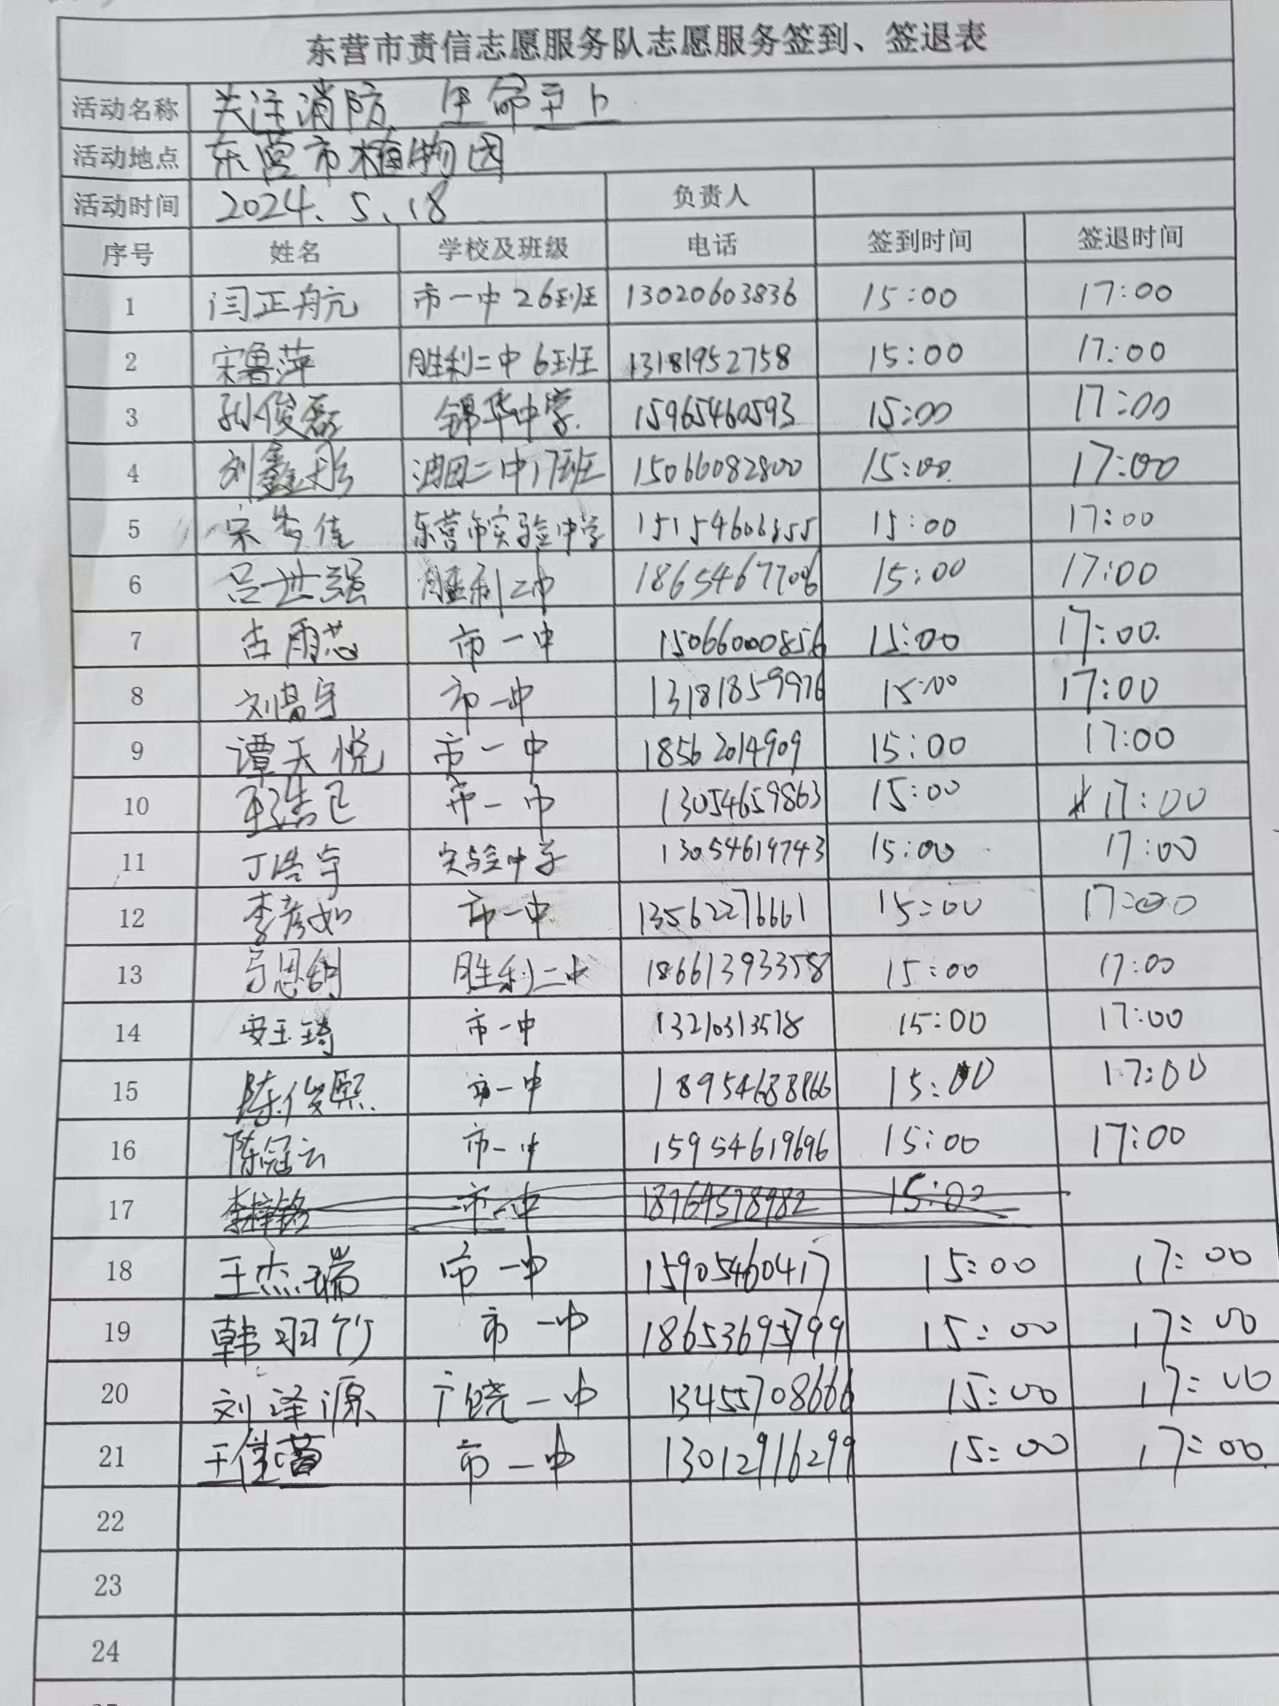 东营市责信志愿服务队志愿服务签到、签退表
活动名称 关注消防 生命至上
活动地点 东营市植物园
活动时间 2024.5.18 负责人
序号 姓名 学校及班级 电话 签到时间 签退时间
1 闫正航 市一中26班 13020603836 15:00 17:00
2 宋鲁萍 胜利二中6班 13181952758 15:00 17:00
3 孙俊磊 锦华中学 15965460593 15:00 17:00
4 刘鑫彤 油田二中17班 15066082800 15:00 17:00
5 宋岩佳 东营市实验中学 15:00 17:00
6 吕世强 胜利二中 18654677006 15:00 17:00
7 古雨芯 市一中 15066000856 15:00 17:00
8 刘昌宇 市一中 13181859976 15:00 17:00
9 谭天悦 市一中 18562014909 15:00 17:00
10 市一中 13054659863 15:00 17:00
11 丁浩宇 实验中学 13054619743 15:00 17:00
12 李彦如 市一中 13562276661 15:00 17:00
13 胜利二中 18661393358 15:00 17:00
14 安玉琦 市一中 13210313518 15:00 17:00
15 陈俊熙 市一中 18954688866 15:00 17:00
16 陈冠云 市一中 15954619696 15:00 17:00
17 李梓铭 市一中 18764578982 15:00
18 王杰瑞 市一中 15905460417 15:00 17:00
19 韩羽竹 市一中 18653695799 15:00 17:00
20 刘泽源 广饶一中 13455708666 15:00 17:00
21 王佳萱 市一中 13012916299 15:00 17:00
22
23
24